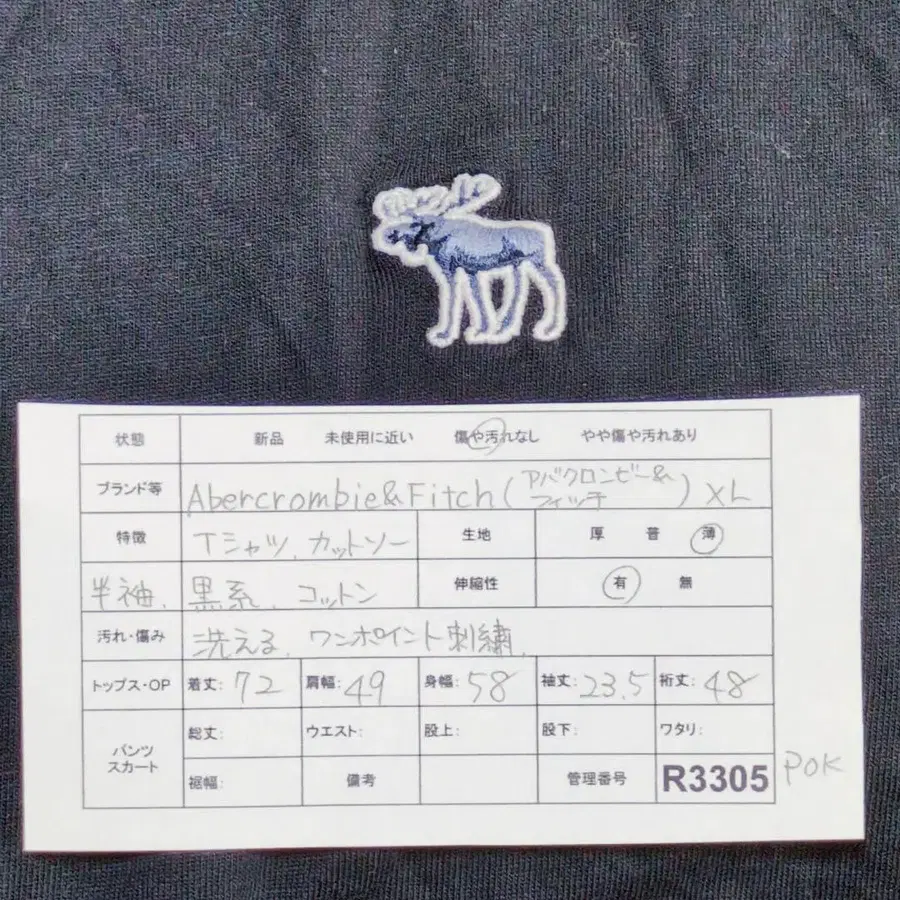 状態 新品 未使用に近い 傷や汚れなし やや傷や汚れあり
ブランド等 Abercrombie&Fitch(アバクロンビー&フィッチ) XL
特徴 Tシャツ、カットソー 生地 厚 普 薄
半袖、黒系、コットン 伸縮性 有 無
汚れ・傷み 洗える、ワンポイント刺繍、
トップス・OP 着丈:72 肩幅:49 身幅:58 袖丈:23.5 裄丈:48
パンツ スカート 総丈: ウエスト: 股上: 股下: ワタリ:
裾幅: 備考 管理番号 R3305 POK